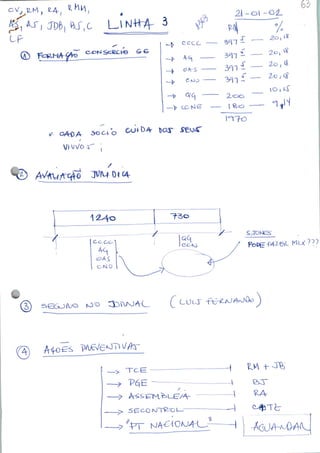 63
CV, RM, RA, RMM,
AS, JDB, BS, C
LF
LINHA 3
21-01-02
R$ %
① FORMAÇÃO CONSÓRCIO GG
→ CCCC — 397,5 — 20,18
→ AG — 397,5 — 20,18
→ OAS — 397,5 — 20,18
→ CNO — 397,5 — 20,18
→ QG — 200 — 10,15
→ CCNE — 180 — 9,14
1970
CADA SOCIO CUIDA DOS SEUS
VIVVOS;
② AVALIAÇÃO JURÍDICA
1240 730
CCCC
AG
OAS
CNO
QG
CCN
S.JONES
PODE FAZER MLX ???
③ SEGURO NO JORNAL (LUIS FERNANDO)
④ AÇÕES PREVENTIVAS
→ TCE — RM + JB
→ PGE — BJ
→ ASSEMBLÉIA — RA
→ SECONTROL
→ "PT NACIONAL" — AGUARDAR